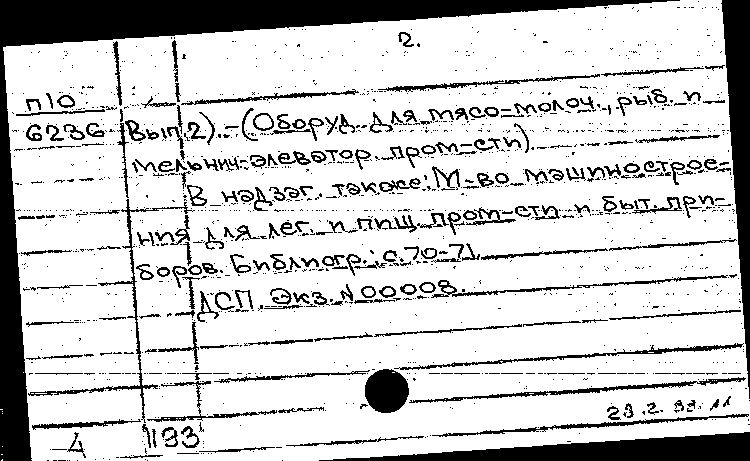 2.
П10
6236 Вып.2). -(Оборуд. для мясо-молоч., рыб. и
мельнич.-элеватор. пром-сти).
В надзаг. также: М-во машинострое-
ния для лег. и пищ. пром-сти и быт. при-
боров. Библиогр.: с.70-71.
ДСП. Экз. N 00008.
4 1193